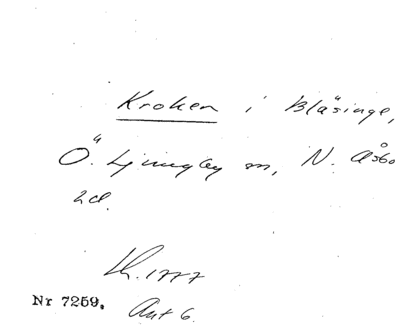 Kroken i Bläsinge,
Ö. Ljungby sn, N. Åsbo
hd.
Lh. 1777
Nr 7259. Akt 6.